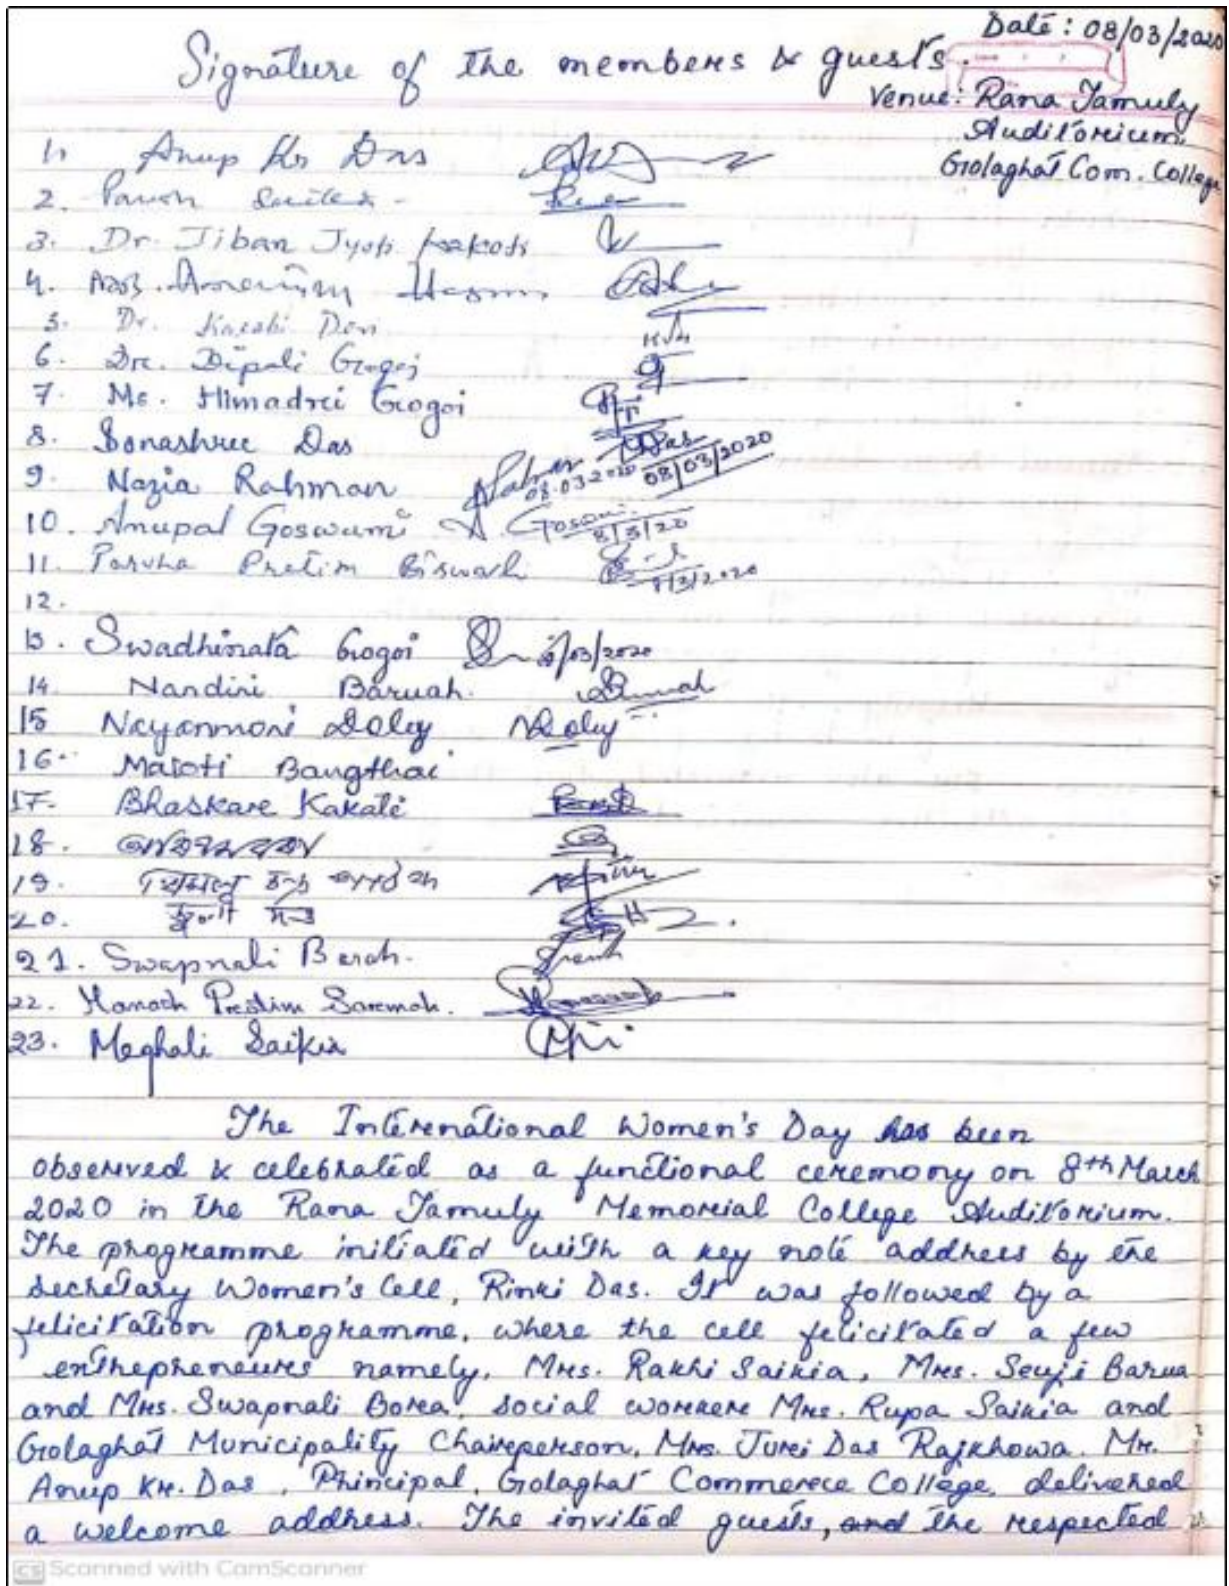 Date: 08/03/2020
Signature of the members & guests.
Venue: Rana Jamuly
Auditorium,
Golaghat Com. College
1. Anup Kr Das
2. Pawan
3. Dr. Jiban Jyoti Kakoti
4.
5. Dr. Karabi Devi
6. Dr. Dipali Gogoi
7. Ms. Himadri Gogoi
8. Bonashree Das Das 08/03/2020
9. Nazia Rahman 08.03.2020
10. Anupal Goswami 8/3/20
11. Pretim 8/3/2020
12.
13. Swadhinata Gogoi 8/03/2020
14. Nandini Baruah. Baruah
15 Nayanmoni Doley NDoley
16. Maloti Bangthai
17. Bhaskar Kakati
18.
19.
20.
21. Swapnali Borah.
22. Manash Pratim Sarmah.
23. Meghali Saikia
The International Women's Day has been
observed & celebrated as a functional ceremony on 8th March
2020 in the Rana Jamuly Memorial College Auditorium.
The programme initiated with a key note address by the
secretary Women's Cell, Rinki Das. It was followed by a
felicitation programme, where the cell felicitated a few
enthepreneurs namely, Mrs. Rakhi Saikia, Mrs. Seuji Barua
and Mrs. Swapnali Borea, social worker Mrs. Rupa Saikia and
Golaghat Municipality Chairperson, Mrs. Juri Das Rajkhowa. Mr.
Anup Kr. Das, Principal, Golaghat Commerce College, delivered
a welcome address. The invited guests, and the respected
CS Scanned with CamScanner